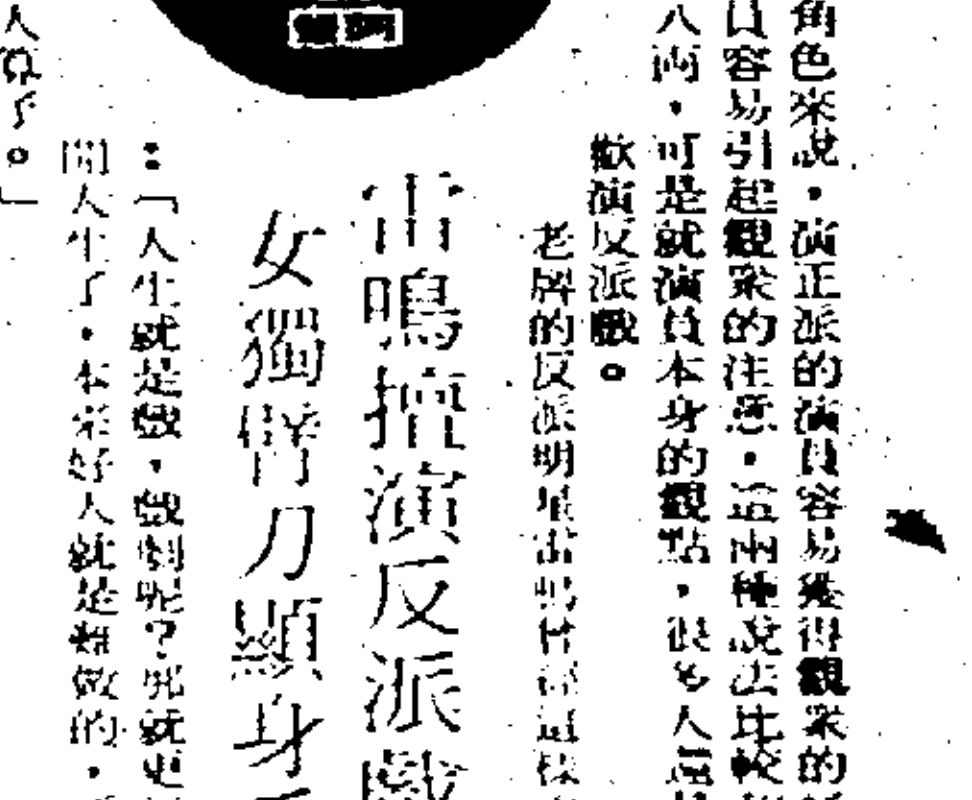 角色來說，演正派的演員容易獲得觀衆的
員容易引起觀衆的注意，這兩種說法比較
八兩，可是就演員本身的觀點，很多人還是
歡演反派戲。
老牌的反派明星雷鳴曾經這樣
雷鳴擅演反派戲
女獨臂刀顯身手
：「人生就是戲，戲劇呢？呢就更
間人生了，本來好人就是難做的，
人算了。」